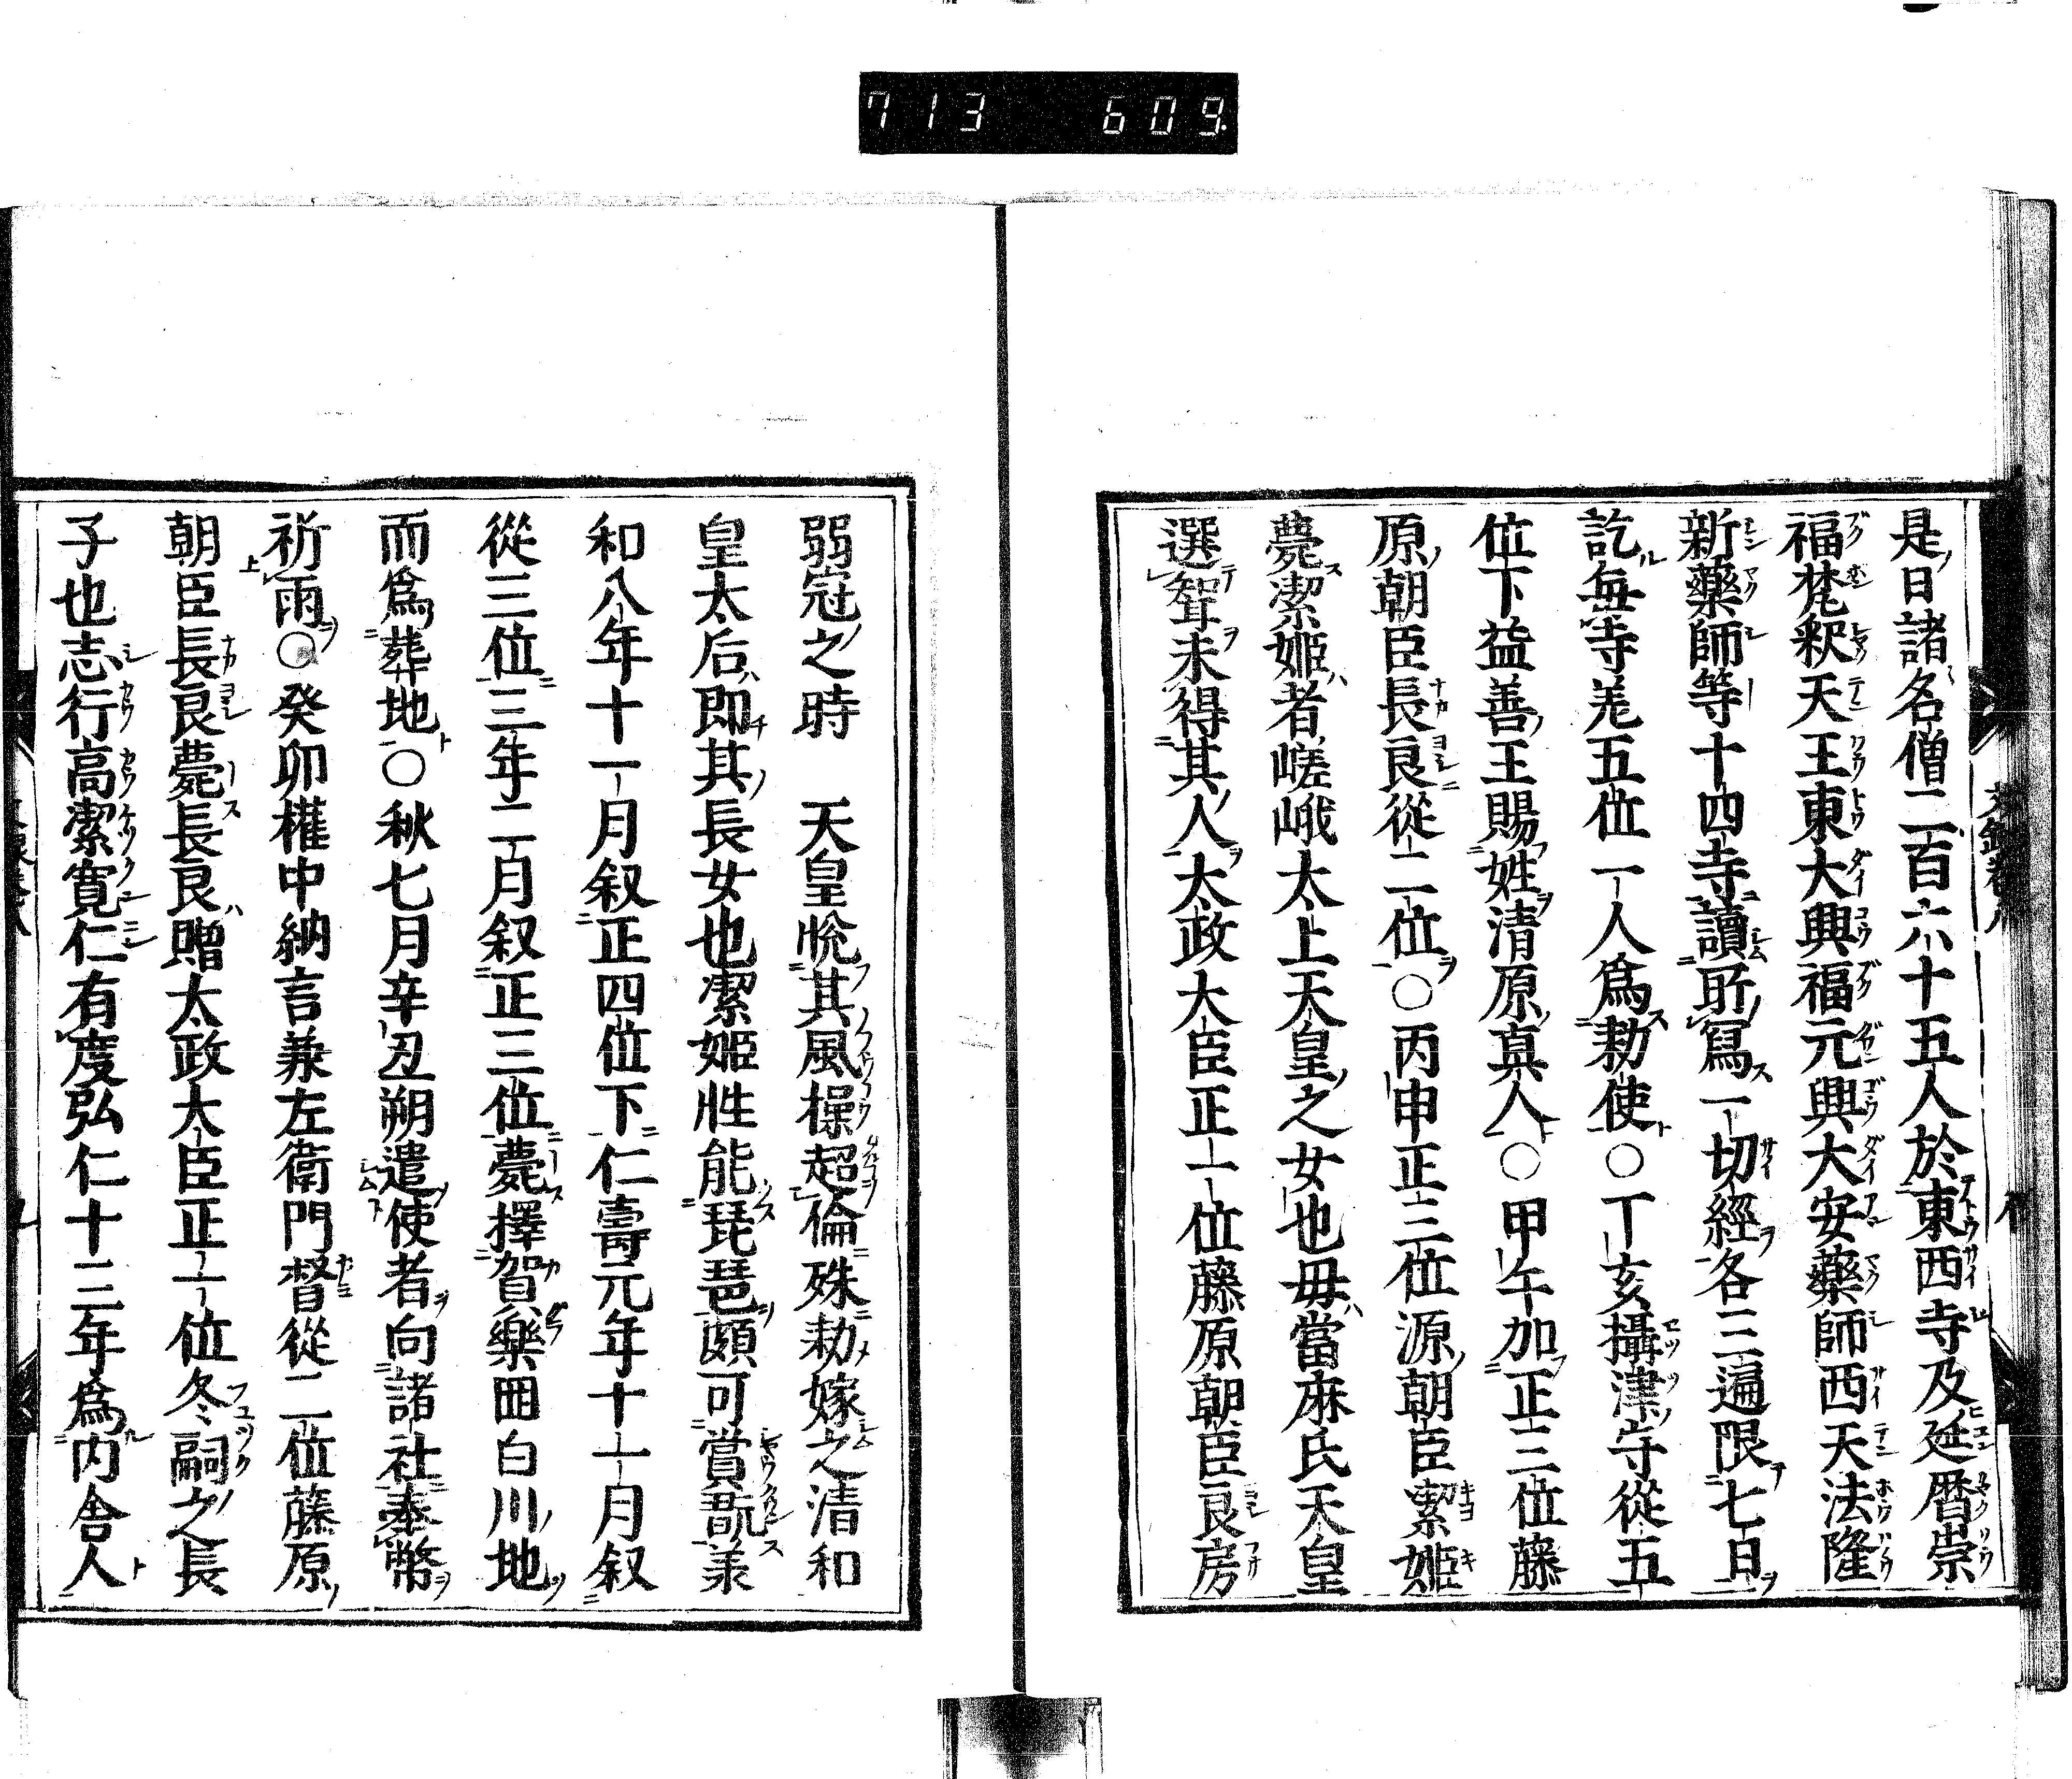 713 609
是日諸名僧二百六十五人於東西寺及延暦崇
福梵釈天王東大興福元興大安藥師西天法隆
新藥師等十四寺讀所寫一切經各三遍限七日
訖毎寺羌五位一人爲勅使○丁亥攝津守從五
位下益善王賜姓清原真人○甲午加正三位藤
原朝臣長良從二位○丙申正三位源朝臣潔姬
薨潔姬者嵯峨太上天皇之女也毋當麻氏天皇
選聟未得其人太政大臣正一位藤原朝臣良房
弱冠之時　天皇悅其風操超倫殊勅嫁之清和
皇太后即其長女也潔姬性能琵琶頗可賞翫兼
和八年十一月叙正四位下仁壽元年十一月叙
從三位三年二月叙正三位薨擇賀樂罡白川地
而爲葬地○秋七月辛丑朔遣使者向諸社奉幣
祈雨○癸卯權中納言兼左衛門督從二位藤原
朝臣長良薨長良贈太政大臣正一位冬嗣之長
子也志行高潔寛仁有度弘仁十三年爲内舎人